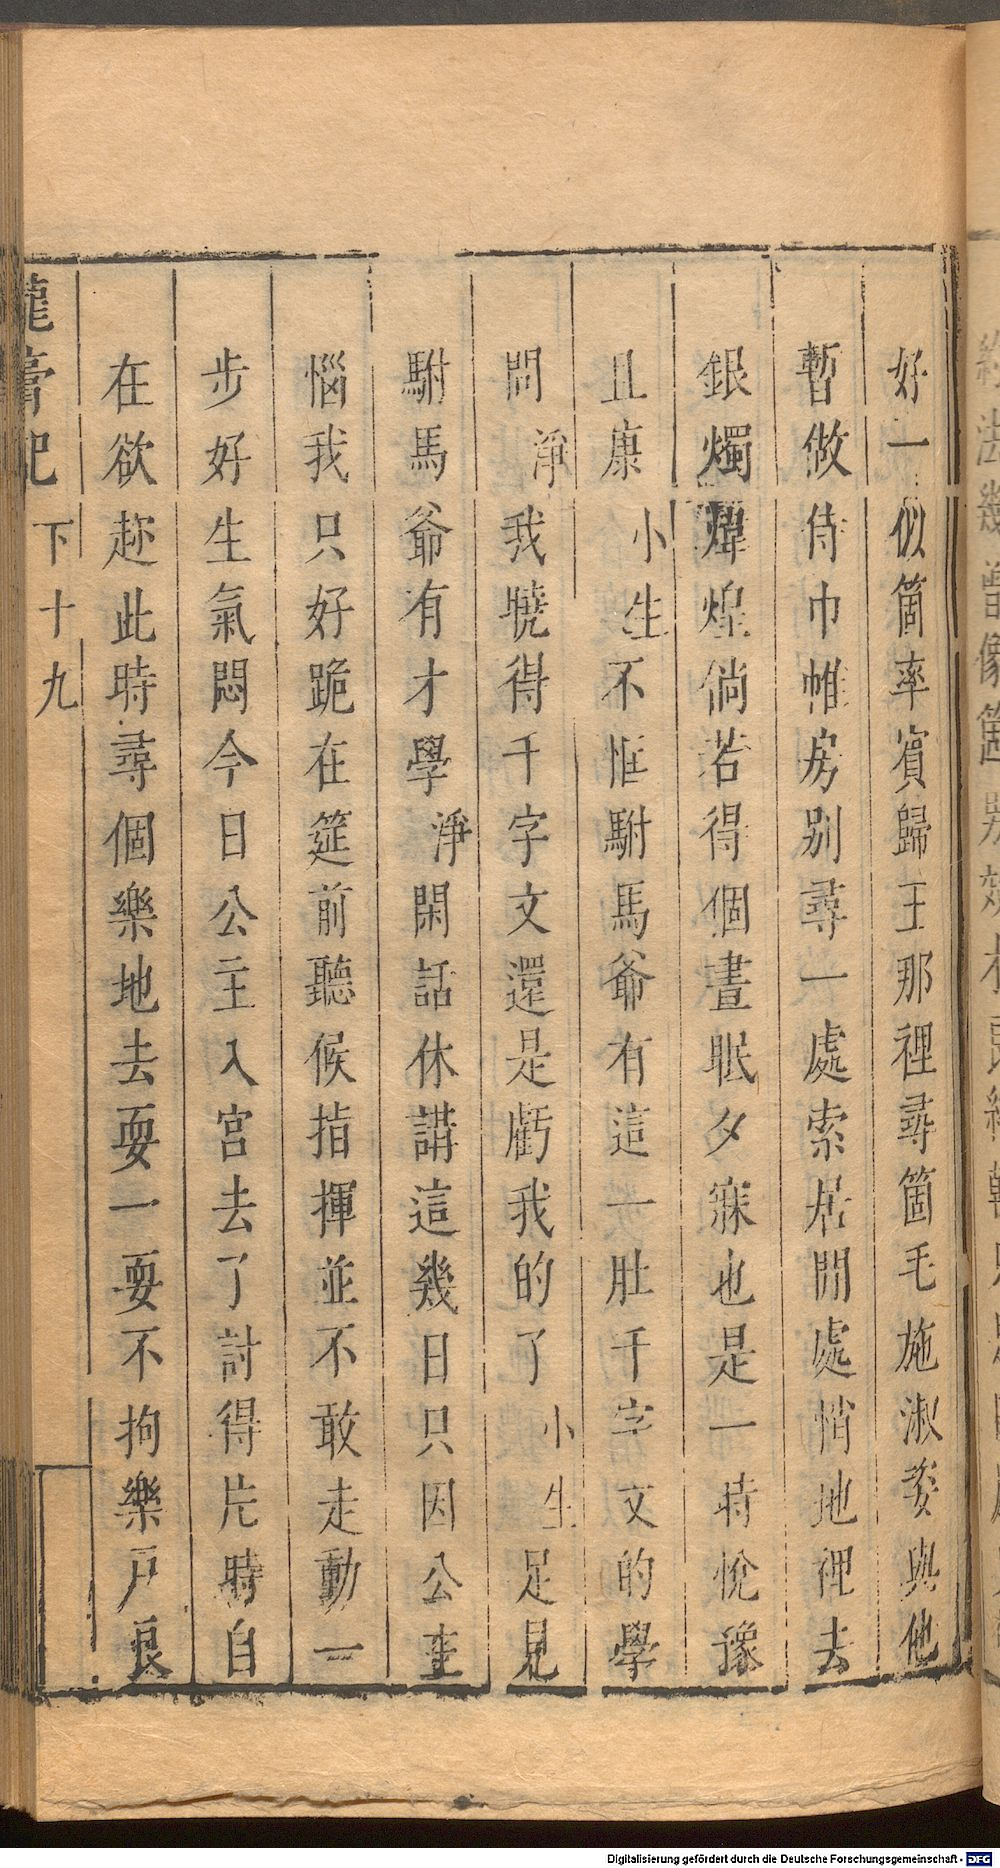 好一似箇率賔歸王那裡尋箇毛施淑姿與他
暫做侍巾帷房别尋一處索居閒處悄地裡去
銀燭煒煌倘若得個晝眠夕寐也是一時恱豫
且康小生不恠駙馬爺有這一肚千字文的學
問淨我曉得千字文還是虧我的了小生足見
駙馬爺有才學淨閑話休講這幾日只因公主
惱我只好跪在筵前聽候指揮並不敢走動一
步好生氣悶今日公主入宮去了討得片時自
在欲趂此時尋個樂地去耍一耍不拘樂戶良
龍膏記
下十九
Digitalisierung gefördert durch die Deutsche Forschungsgemeinschaft - DFG